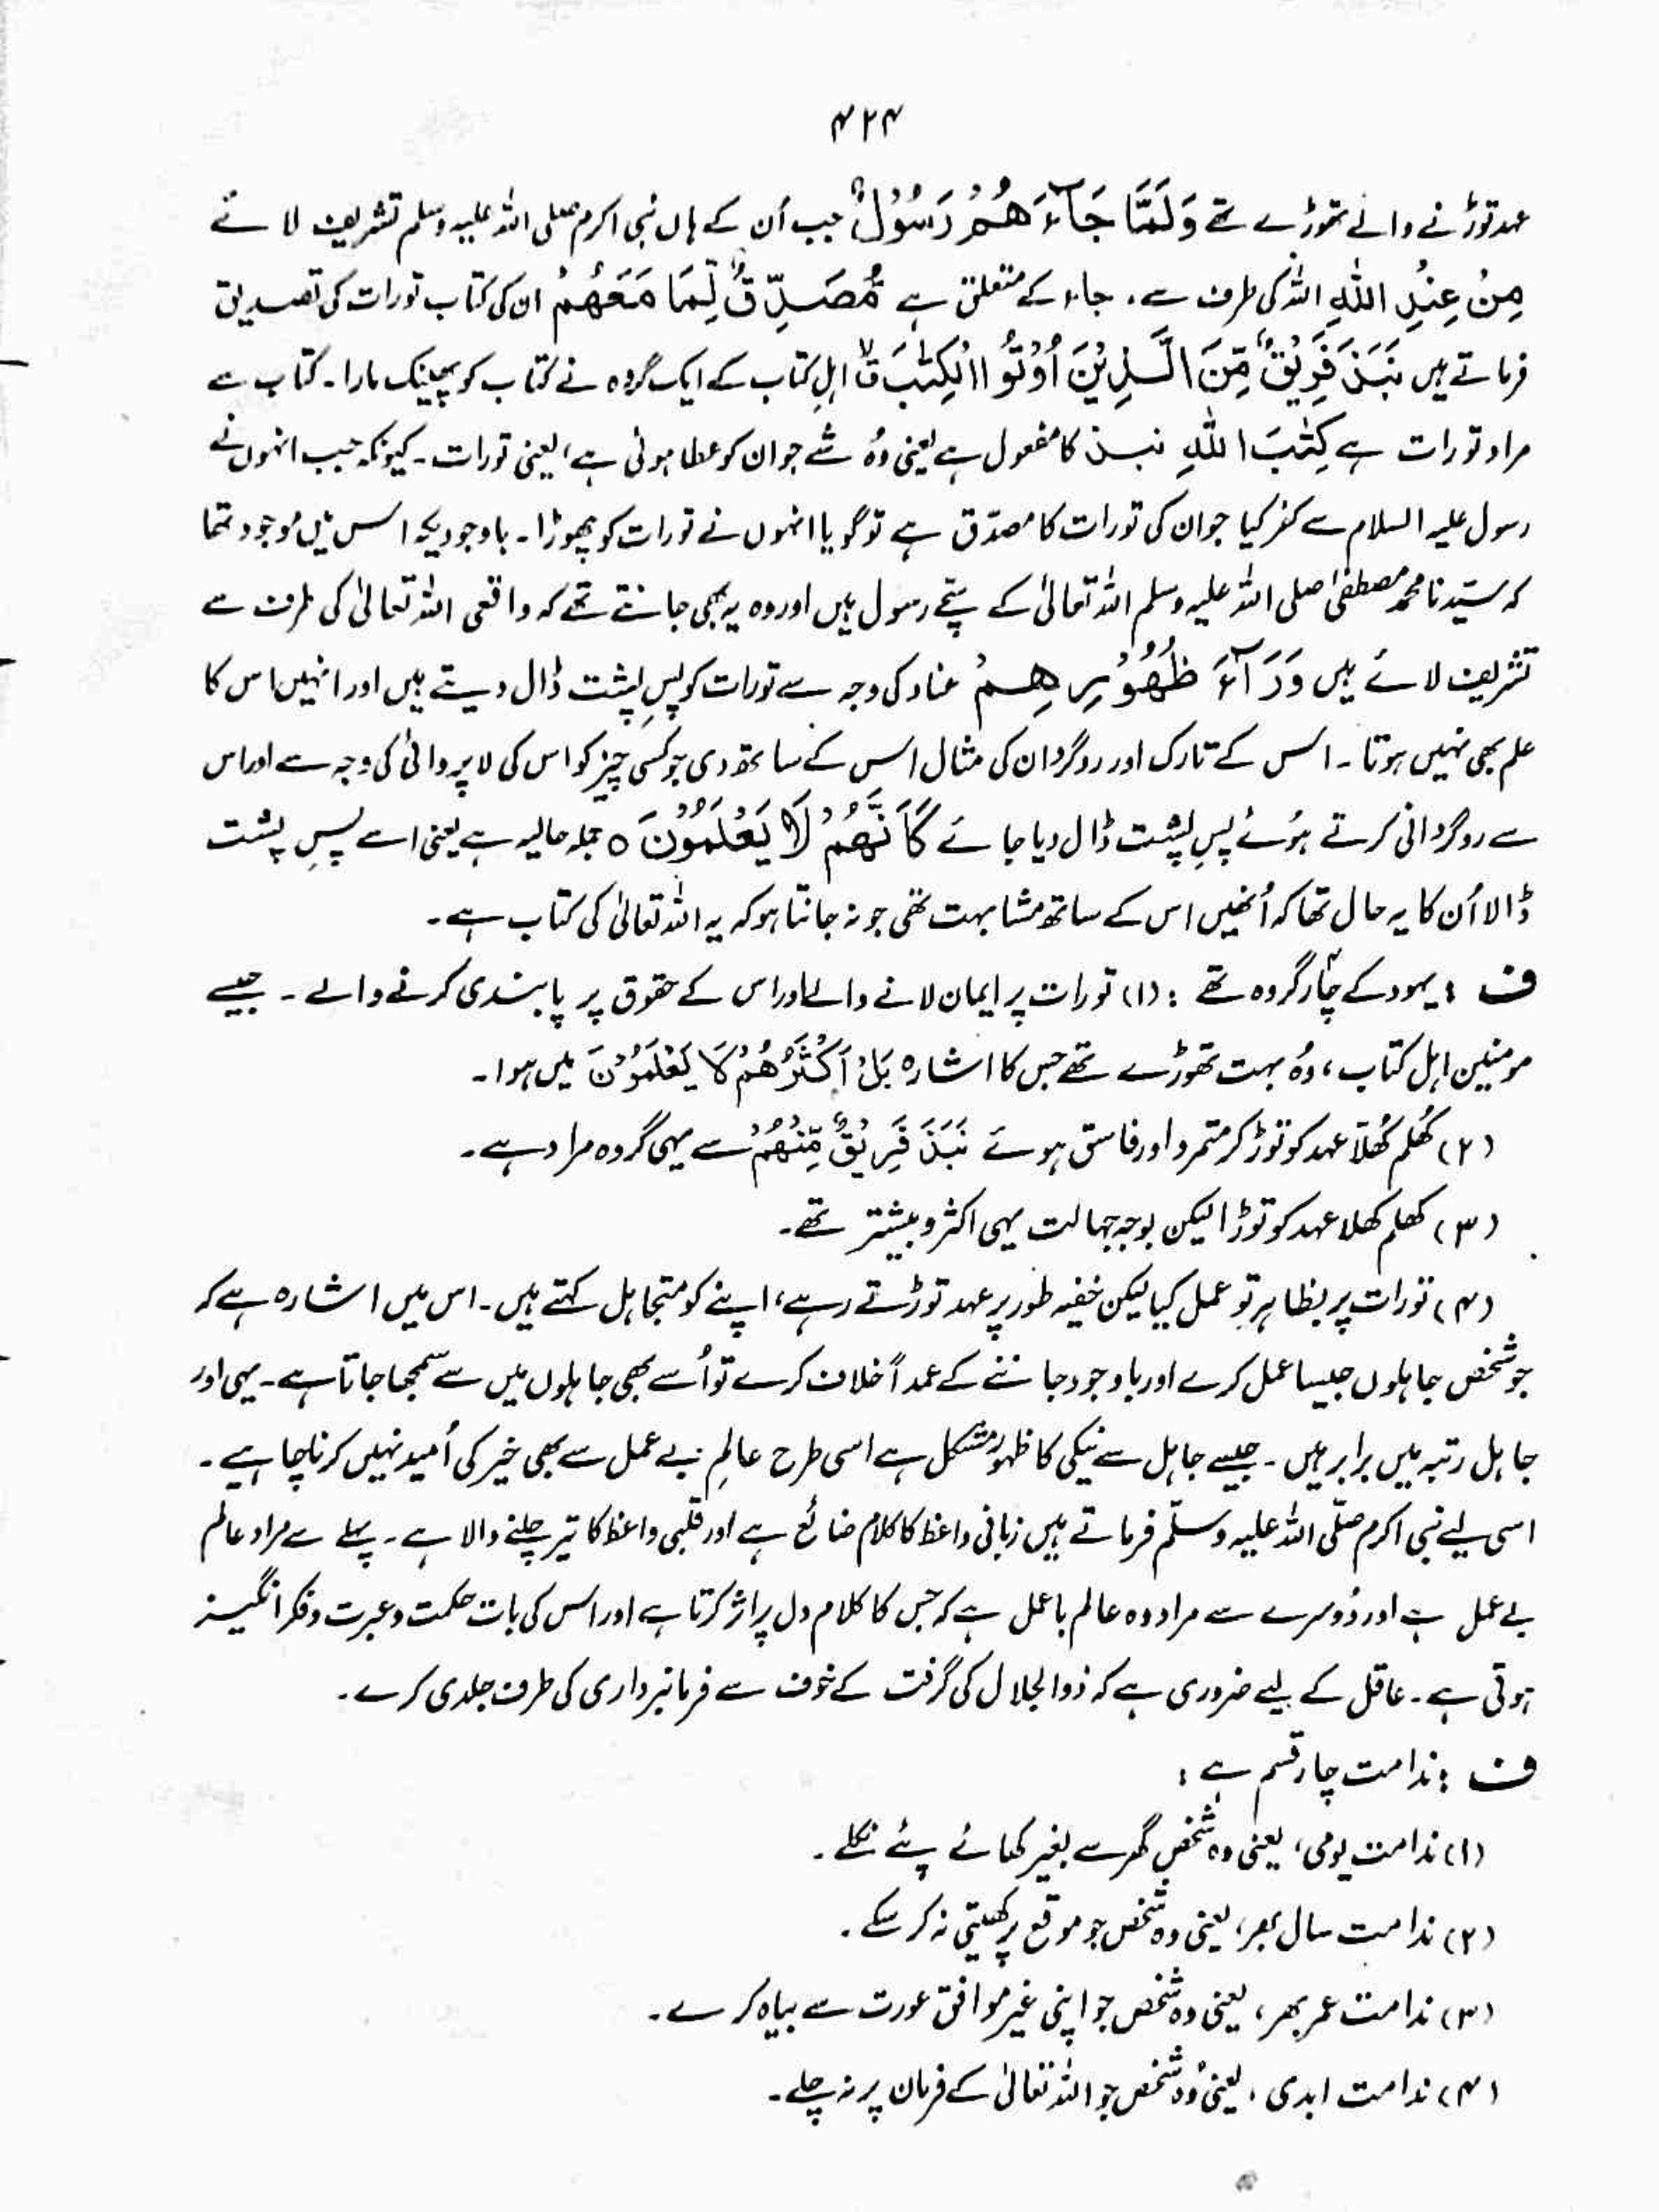 ۴۲۴
عہد توڑنے والے تھوڑے تھے وَلَمَّا جَآءَهُمْ رَسُوْلٌ جب اُن کے ہاں نبی اکرم صلی اللہ علیہ وسلم تشریف لائے
مِنْ عِنْدِ اللّٰهِ اللہ کی طرف سے، جاء کے متعلق ہے مُصَدِّقٌ لِّمَا مَعَهُمْ ان کی کتاب تورات کی تصدیق
فرماتے ہیں نَبَذَ فَرِيْقٌ مِّنَ الَّذِيْنَ اُوْتُوا الْكِتٰبَ ق اہلِ کتاب کے ایک گروہ نے کتاب کو پھینک مارا۔ کتاب سے
مراد تورات ہے كِتٰبَ اللّٰهِ نبذ کا مفعول ہے یعنی وُہ شے جو ان کو عطا ہوئی ہے، یعنی تورات۔ کیونکہ جب انہوں نے
رسول علیہ السلام سے کفر کیا جو ان کی تورات کا مصدّق ہے تو گویا انہوں نے تورات کو چھوڑا۔ باوجودیکہ اس میں موجود تھا
کہ سیّدنا محمد مصطفیٰ صلی اللہ علیہ وسلم اللہ تعالیٰ کے سچّے رسول ہیں اور وہ یہ بھی جانتے تھے کہ واقعی اللہ تعالیٰ کی طرف سے
تشریف لائے ہیں وَرَآءَ ظُهُوْرِهِمْ عناد کی وجہ سے تورات کو پسِ پشت ڈال دیتے ہیں اور انہیں اس کا
علم بھی نہیں ہوتا۔ اس کے تارک اور روگردان کی مثال اس کے ساتھ دی جو کسی چیز کو اس کی لاپروائی کی وجہ سے اور اس
سے روگردانی کرتے ہُوئے پسِ پشت ڈال دیا جائے كَاَنَّهُمْ لَا يَعْلَمُوْنَ ○ جملہ حالیہ ہے یعنی اسے پسِ پشت
ڈالا اُن کا یہ حال تھا کہ اُنھیں اس کے ساتھ مشابہت تھی جو نہ جانتا ہو کہ یہ اللہ تعالیٰ کی کتاب ہے۔
ف : یہود کے چار گروہ تھے : (۱) تورات پر ایمان لانے والے اور اس کے حقوق پر پابندی کرنے والے ۔ جیسے
مومنین اہل کتاب، وُہ بہت تھوڑے تھے جس کا اشارہ بَلْ اَكْثَرُهُمْ لَا يَعْلَمُوْنَ میں ہوا۔
(۲) کُھلم کُھلّا عہد کو توڑ کر متمرد اور فاسق ہوئے نَبَذَ فَرِيْقٌ مِّنْهُمْ سے یہی گروہ مراد ہے۔
(۳) کھلم کھلا عہد کو توڑا لیکن بوجہ جہالت یہی اکثر و بیشتر تھے۔
(۴) تورات پر بظاہر تو عمل کیا لیکن خفیہ طور پر عہد توڑتے رہے، اپنے کو متجاہل کہتے ہیں۔ اس میں اشارہ ہے کہ
جو شخص جاہلوں جیسا عمل کرے اور باوجود جاننے کے عمداً خلاف کرے تو اُسے بھی جاہلوں میں سے سمجھا جاتا ہے۔ یہی اور
جاہل رتبہ میں برابر ہیں ۔ جیسے جاہل سے نیکی کا ظہور مشکل ہے اسی طرح عالمِ بے عمل سے بھی خیر کی اُمید نہیں کرنا چاہیے ۔
اسی لیے نبی اکرم صلّی اللہ علیہ وسلّم فرماتے ہیں زبانی واعظ کا کلام ضائع ہے اور قلبی واعظ کا تیر چلنے والا ہے ۔ پہلے سے مراد عالم
بے عمل ہے اور دُوسرے سے مراد وہ عالم باعمل ہے کہ جس کا کلام دل پر اثر کرتا ہے اور اس کی بات حکمت و عبرت و فکر انگیز
ہوتی ہے ۔ عاقل کے لیے ضروری ہے کہ ذوالجلال کی گرفت کے خوف سے فرمانبرداری کی طرف جلدی کرے ۔
ف : ندامت چار قسم ہے :
(۱) ندامت یومی، یعنی وہ شخص گھر سے بغیر کھائے پئے نکلے ۔
(۲) ندامت سال بھر، یعنی وہ شخص جو موقع پر کھیتی نہ کر سکے ۔
(۳) ندامت عمر بھر، یعنی وہ شخص جو اپنی غیر موافق عورت سے بیاہ کرے ۔
(۴) ندامت ابدی ، یعنی وُہ شخص جو اللہ تعالیٰ کے فرمان پر نہ چلے ۔